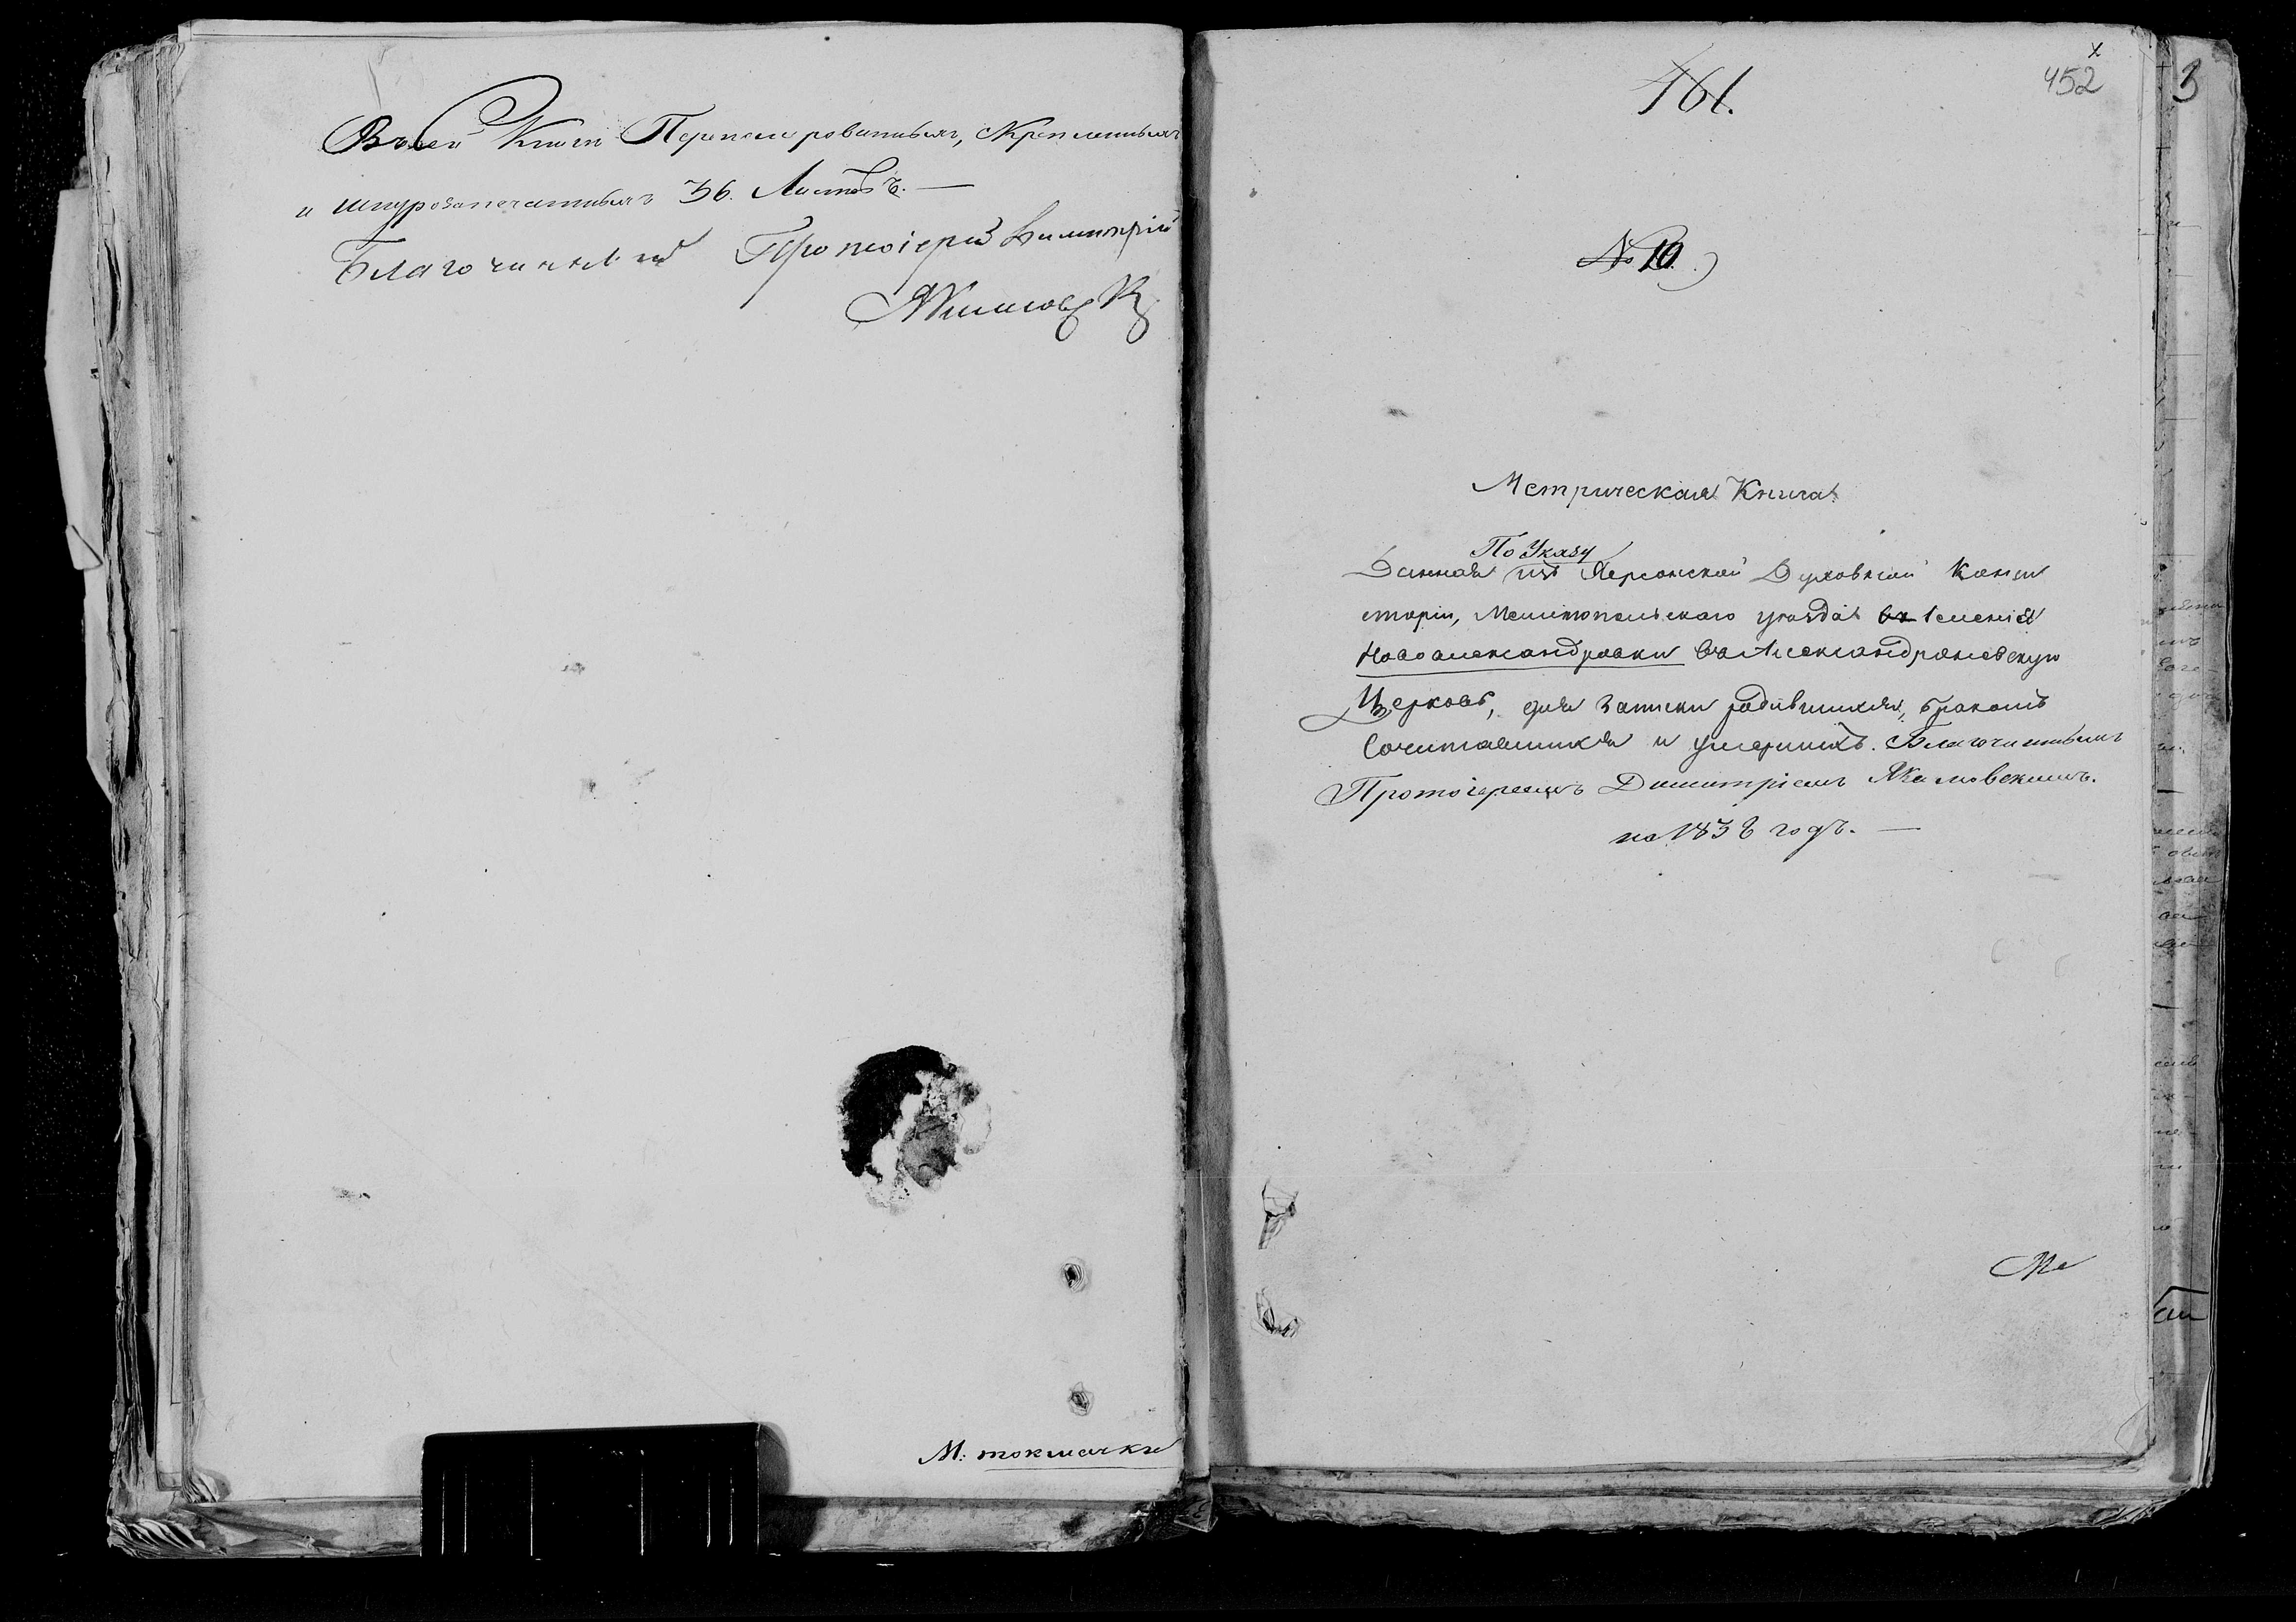 Въ сей Книги Перенумерованныхъ, Скрепленныхъ
и шнурозапечатанныхъ 36. Листовъ. —
Благочинный Протоіерей Димитрій
Якимовск
М: токмачки
161.
452
3
№ 10.
Метрическая Книга
По Указу
Данная изъ Херсонской Духовной Конси
сторіи, Мелитопольскаго уѣзда въ Селеніе
Новоалександровки въ Александроневскую
Церковь, для записки родившихся, бракомъ
Сочитавшихся и умершихъ. Благочиннымъ
Протоіереемъ Димитріемъ Якимовскимъ.
на 1838 годъ. —
Ме